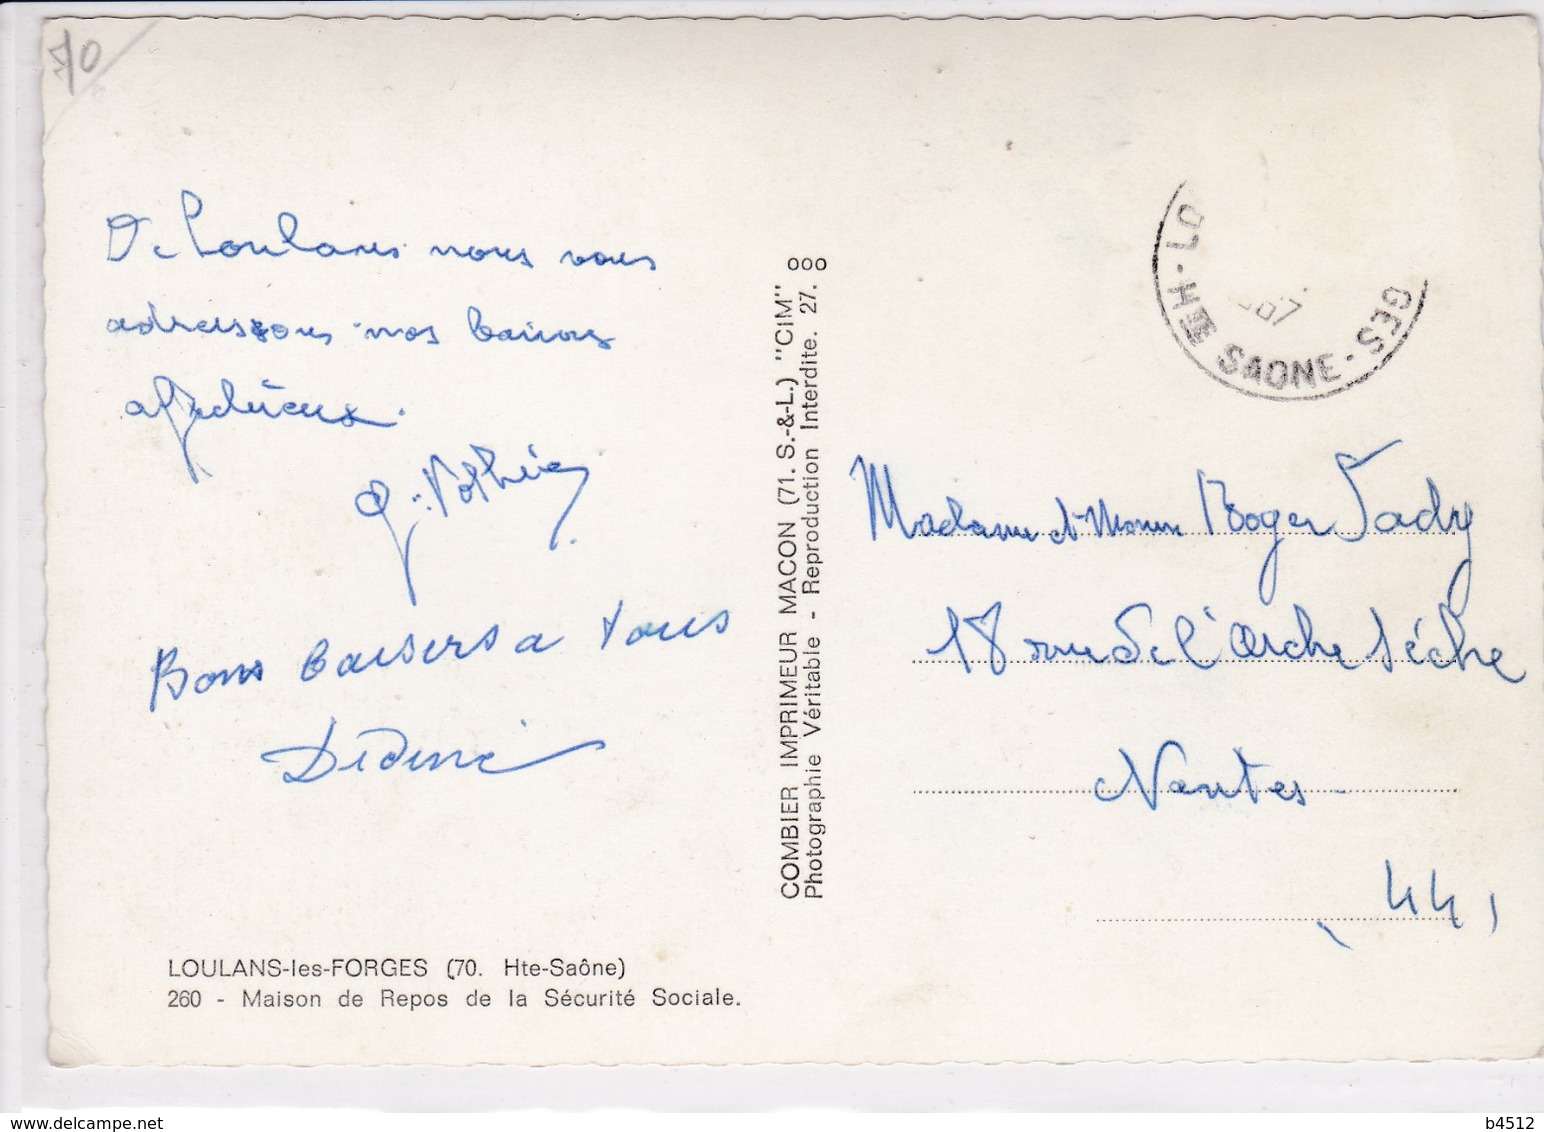 70
De Loulans nous vous
adressons nos baisers
affectueux.
Bons baisers a tous
LO
GES - Hte SAONE -
COMBIER IMPRIMEUR MACON (71. S.-&-L.) "CIM"
Photographie Véritable - Reproduction Interdite. 27.
Madame et Monsieur Roger
18 rue de l'Arche Sèche
Nantes
44
LOULANS-les-FORGES (70. Hte-Saône)
260 - Maison de Repos de la Sécurité Sociale.
www.delcampe.net
b4512